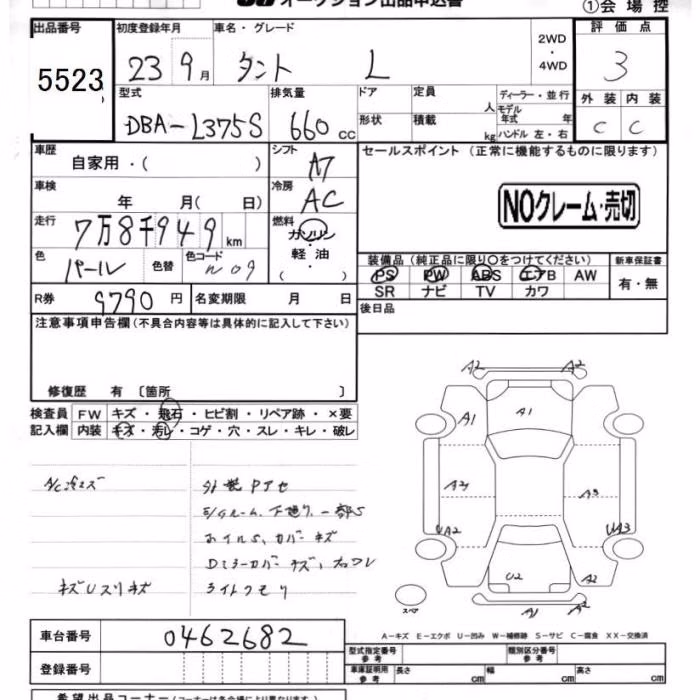 オークション出品申込書
①会場控
出品番号 初度登録年月 車名・グレード 2WD・4WD 評価点
5523 23 9月 タント L 3
型式 排気量 ドア 定員 人 ディーラー・並行 外装 内装
DBA-L375S 660cc 形状 積載 kg モデル年式 年 ハンドル 左・右 C C
車歴 自家用・( ) シフト A7 セールスポイント (正常に機能するものに限ります)
車検 年 月( 日) 冷房 AC NOクレーム・売切
走行 7万8千949km 燃料 ガソリン・軽油・( )
装備品(純正品に限り○をつけてください) 新車保証書
色 パール 色替 色コード W09 PS PW ABS エアB AW 有・無
SR ナビ TV カワ
R券 9790円 名変期限 月 日 後日品
注意事項申告欄(不具合内容等は具体的に記入して下さい)
修復歴 有〔箇所 〕
検査員 FW キズ・飛石・ヒビ割・リペア跡・×要
記入欄 内装 キズ・汚レ・コゲ・穴・スレ・キレ・破レ
外装Pアセ
下廻り、一部S
オイルS、カバーキズ
Dミラーカバーキズ、
キズUスリキズ ライトクモリ
A2 A2
A1 A1
A2 A3
UA2 UA3
U2 A2
スペア A1 A2
A-キズ E-エクボ U-凹み W-補修跡 S-サビ C-腐食 XX-交換済
車台番号 0462682 型式指定番号 参考 類別区分番号 参考
登録番号 車庫証明用 参考 長さ cm 幅 cm 高さ cm
希望出品コーナー